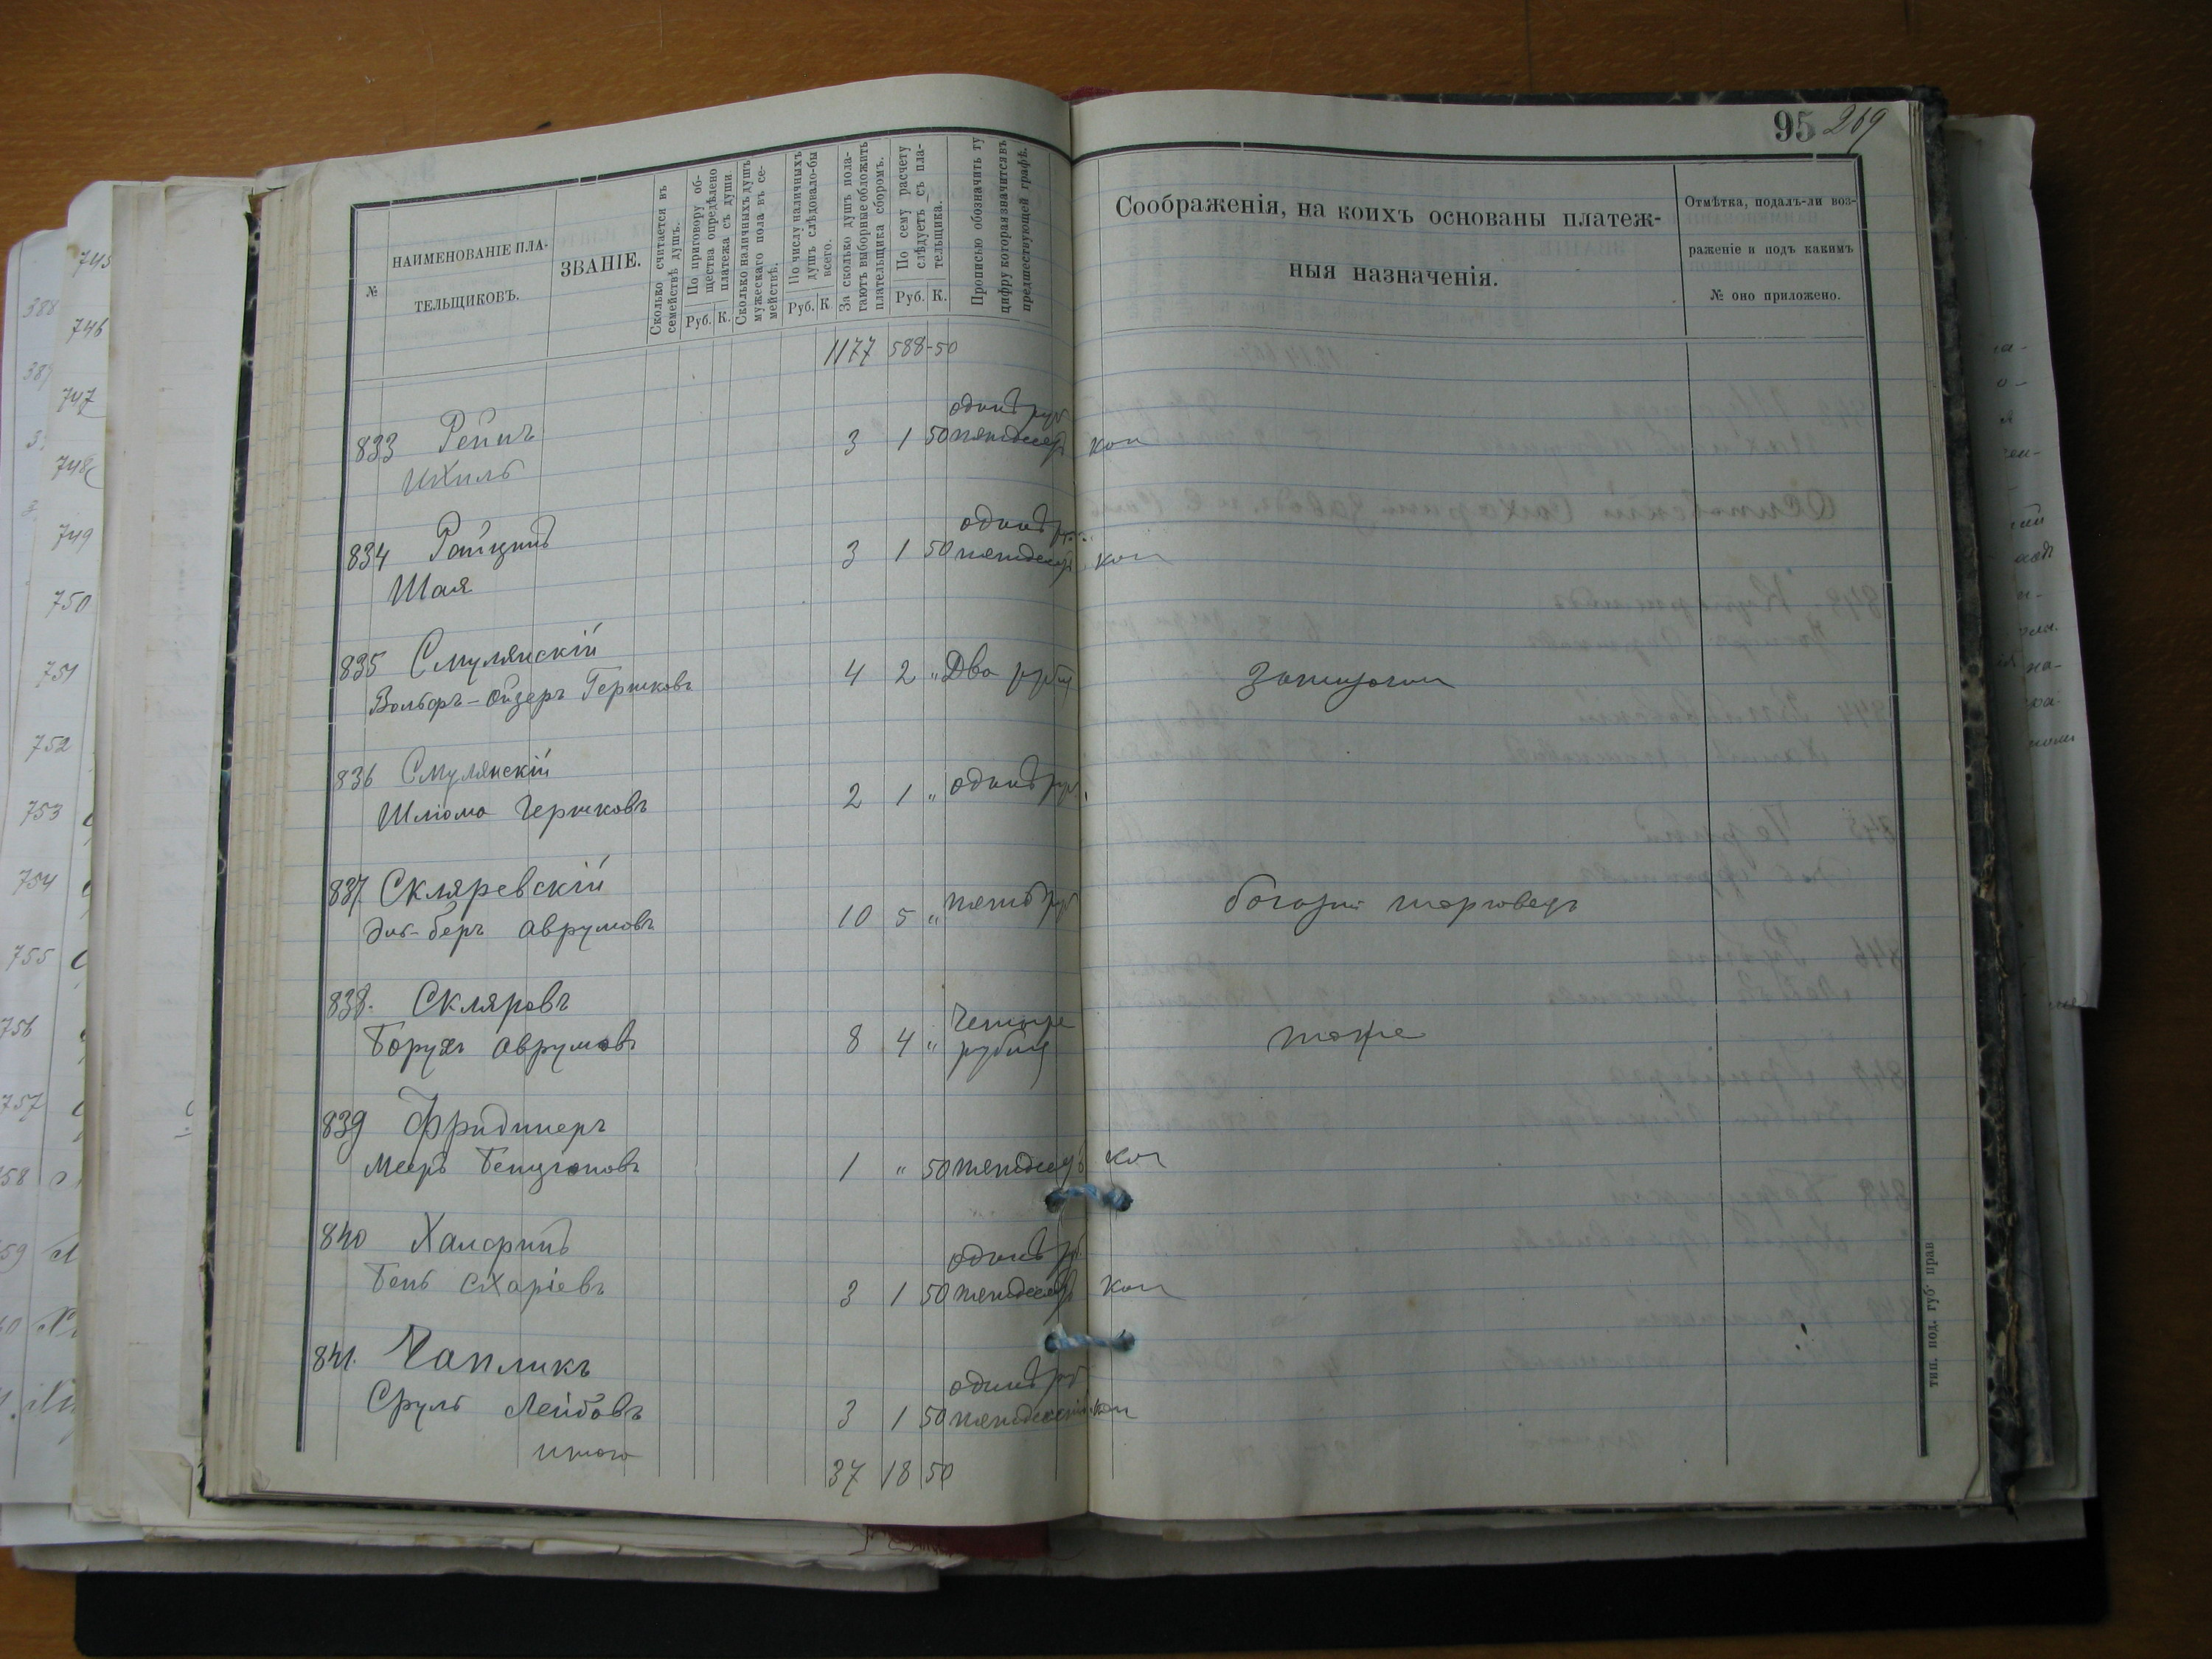 95 269
№
НАИМЕНОВАНІЕ ПЛА-
ТЕЛЬЩИКОВЪ.
ЗВАНІЕ.
Сколько считается въ
семействѣ душъ.
По приговору об-
щества опредѣлено
платежа съ души
Руб. К.
Сколько наличныхъ душъ
мужескаго пола въ се-
мействѣ.
По числу наличныхъ
душъ слѣдовало-бы
всего.
Руб. К
За сколько душъ пола-
гаютъ выборные обложить
плательщика сборомъ.
По сему расчету
слѣдуетъ съ пла-
тельщика.
Руб. К.
Прописью обозначить ту
цифру которая значится въ
предшествующей графѣ.
Соображенія, на коихъ основаны платеж-
ныя назначенія.
Отмѣтка, подалъ-ли воз-
раженіе и подъ какимъ
№ оно приложено.
1177 588-50
833 Рейнъ
Ихиль
3 1 50 одинъ руб
пятьдесятъ коп
834 Райцинъ
Шая
3 1 50 одинъ
пятьдесятъ коп
835 Смулянскій
Вольфъ-Ойзеръ Гершковъ
4 2 " Два рубл
836 Смулянскій
Шліома Гершковъ
2 1 " одинъ руб.
837. Скляревскій
Эль-беръ Аврумовъ
10 5 " пять руб
богатый торговецъ
838. Скляровъ
Борухъ Аврумовъ
8 4 " Четыре
рубля
тоже
839 Фридинеръ
Мееръ Бенціоновъ
1 " 50 пятьдесятъ коп
840
Бень Схаріевъ
3 1 50 одинъ руб.
пятьдесятъ коп
841. Чапликъ
Сруль Лейбовъ
3 1 50 одинъ руб
пятьдесятъ коп
итого
37 18 50
тип. под. губ. прав
745
746
747
748
749
750
751
752
753
754
755
756
757